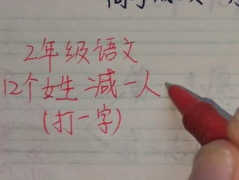 2年级语文
12个女姓 减一人
(打一字)